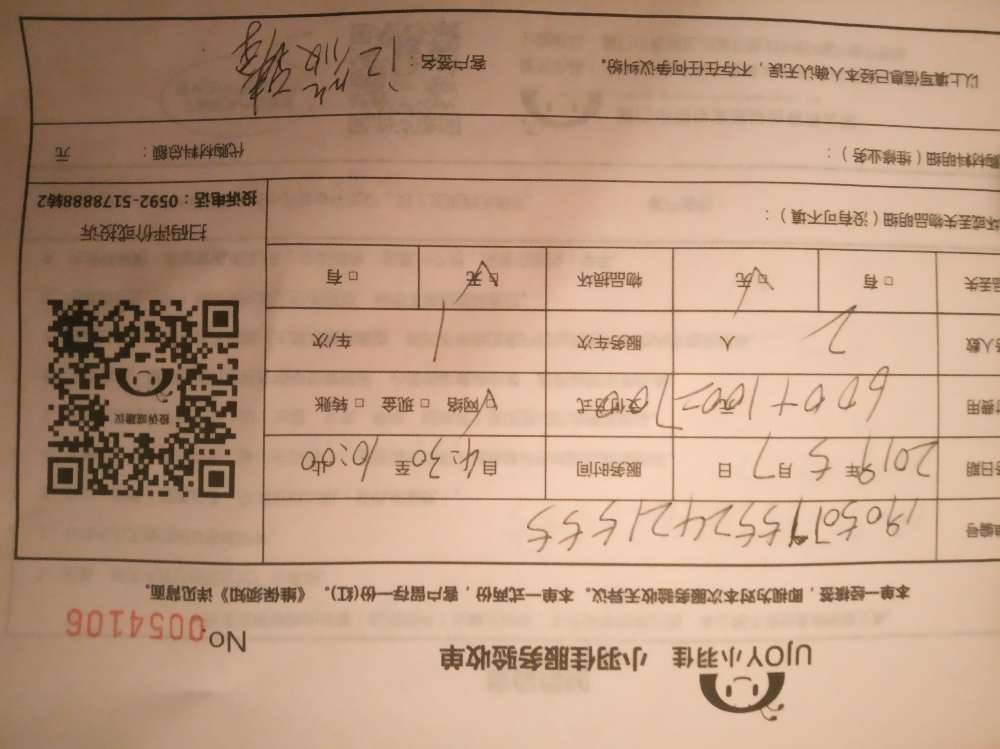 UJOY小羽佳 小羽佳服务验收单
No 0054106
本单一经接签，即视为对本次服务验收无异议。本单一式两份，客户留存一份(红)。《维保须知》详见背面。
编号
日期 2019年 5月 7日 服务时间 自 4:30 至 10:00 止
费用 600+100=700 元 支付方式 ☑网络 □现金 □转账
人数 2 人 服务车次 1 车/次
丢失 □有 ☑无 物品损坏 ☑无 □有
坏或丢失物品明细（没有可不填）：
购材料明细（维修业务）： 代购材料总额： 元
以上填写信息已经本人确认无误，不存在任何争议纠纷。 客户签名：
投诉或建议
扫码评价或投诉
投诉电话：0592-5178888转2